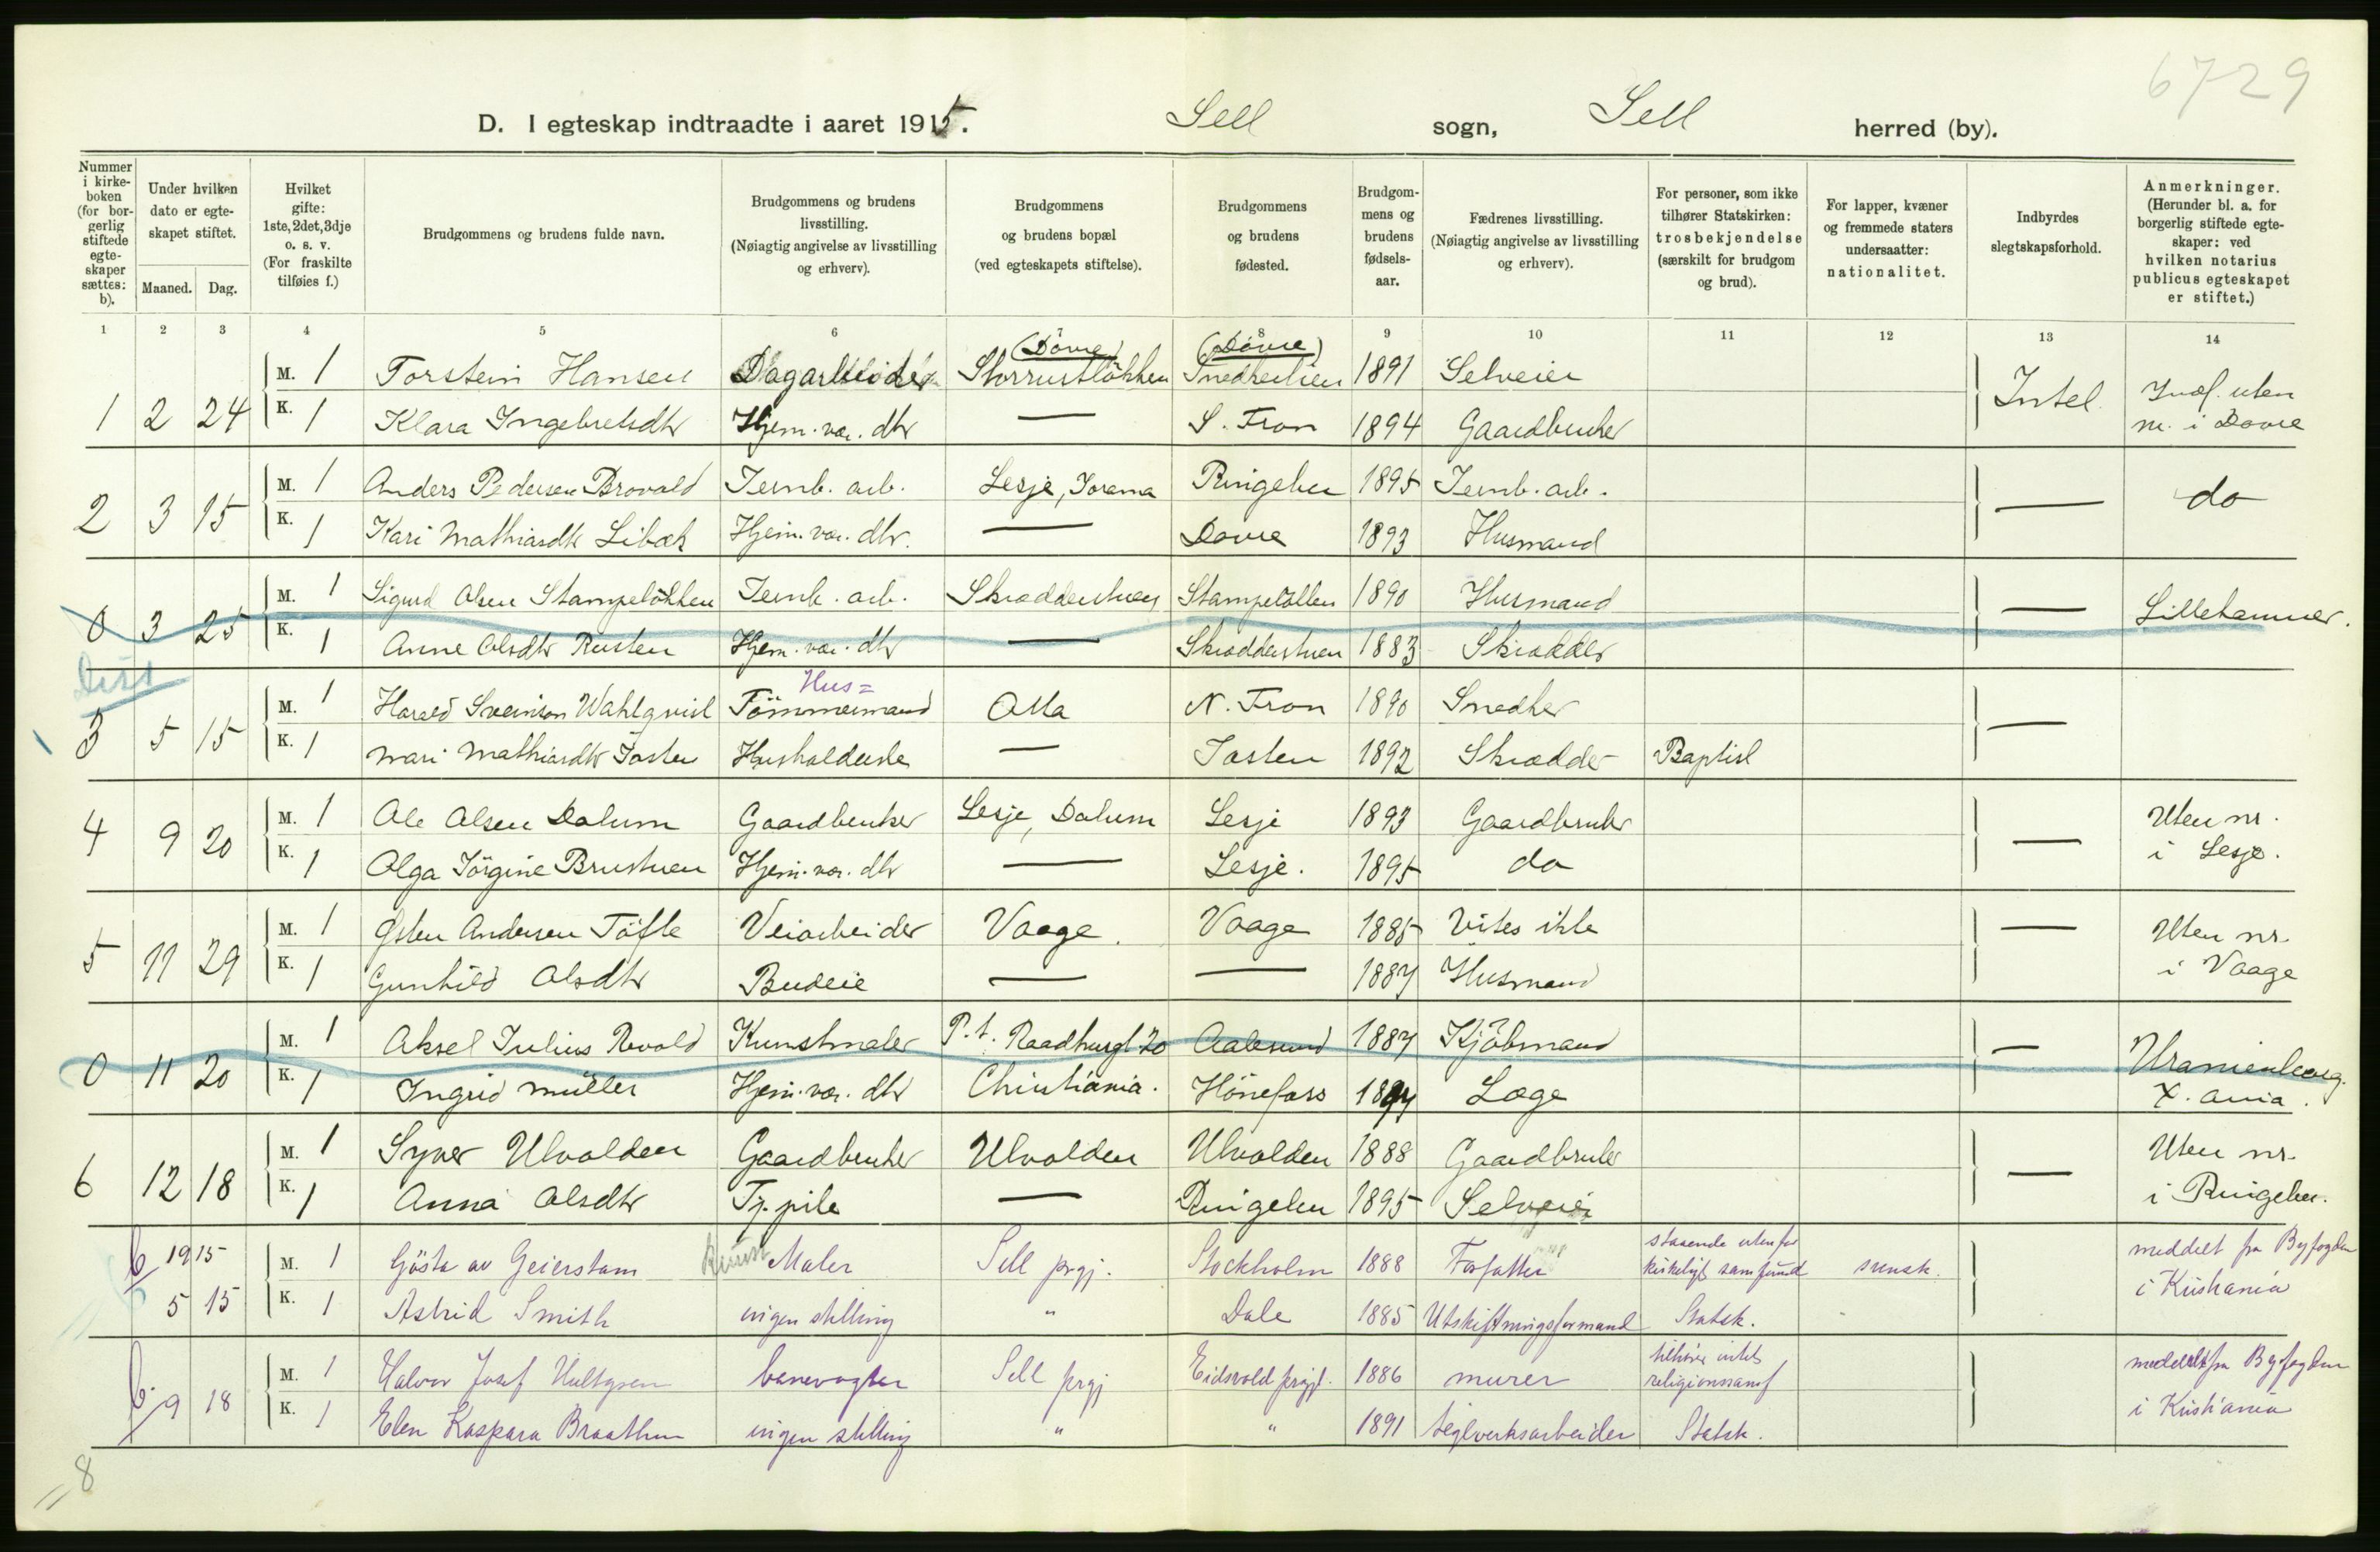 6729
D. I egteskap indtraadte i aaret 1915. Sell sogn, Sell herred (by).
Nummer i kirkeboken (for borgerlig stiftede egteskaper sættes: b).
Under hvilken dato er egteskapet stiftet.
Maaned. Dag.
Hvilket gifte: 1ste, 2det, 3dje o. s. v. (For fraskilte tilføies f.)
Brudgommens og brudens fulde navn.
Brudgommens og brudens livsstilling. (Nøiagtig angivelse av livsstilling og erhverv).
Brudgommens og brudens bopæl (ved egteskapets stiftelse).
Brudgommens og brudens fødested.
Brudgommens og brudens fødselsaar.
Fædrenes livsstilling. (Nøiagtig angivelse av livsstilling og erhverv).
For personer, som ikke tilhører Statskirken: trosbekjendelse (særskilt for brudgom og brud).
For lapper, kvæner og fremmede staters undersaatter: nationalitet.
Indbyrdes slegtskapsforhold.
Anmerkninger. (Herunder bl. a. for borgerlig stiftede egteskaper: ved hvilken notarius publicus egteskapet er stiftet.)
1 2 3 4 5 6 7 8 9 10 11 12 13 14
(Dovre) (Dovre)
M. 1 Torstein Hansen Dagarbeider Storrustløkken 1891 Selveier
1 2 24 K. 1 Klara Ingebretsdtr Hjem. vær. dtr — S. Fron 1894 Gaardbruker Intet. uten nr. i Dovre
M. 1 Anders Pedersen Brovold Jernb. arb. Lesje, Jorama Ringebu 1895 Jernb. arb.
2 3 15 K. 1 Kari Mathiasdtr Libæk Hjem. vær. dtr. — Dovre 1893 Husmand — do
M. 1 Sigurd Olsen Stampeløkken Jernb. arb. Skrædderstuen 1890 Husmand
0 3 25 K. 1 Anne Olsdtr Rusten Hjem. vær. dtr — Skrædderstuen 1883 Skrædder — Lillehammer.
Dist
Hus=
M. 1 Harald Sveinson Wahlqvist Tömmermand Otta N. Fron 1890 Smedker
3 5 15 K. 1 Mari Mathiasdtr Josten Husholderske — Josten 1892 Skrædder Baptist —
M. 1 Ole Olsen Dalum Gaardbruker Lesje, Dalum Lesje 1893 Gaardbruker
4 9 20 K. 1 Olga Jörgine Brustuen Hjem. vær. dtr — Lesje. 1895 do — Uten nr. i Lesje.
M. 1 Østen Andersen Töfte Veiarbeider Vaage. Vaage 1885 Vites ikke
5 11 29 K. 1 Gunhild Olsdtr Budeie — — 1887 Husmand — Uten nr. i Vaage
M. 1 Aksel Julius Revold Kunstmaler P. t. Raadhusgt 20 Aalesund 1887 Kjöbmand
0 11 20 K. 1 Ingrid Müller Hjem. vær. dtr Christiania. Hönefoss Læge — Uranienborg. X.ania.
M. 1 Syver Ulvolden Gaardbruker Ulvolden Ulvolden 1888 Gaardbruker
6 12 18 K. 1 Anna Olsdtr Tj. pike — Ringebu 1895 Selveier — Uten nr. i Ringebu.
b 1915 M. 1 Gösta av Geierstam Kunst Maler Sell prgj. Stockholm 1888 Forfatter staaende utenfor kirkeligt samfund svensk.
5 15 K. 1 Astrid Smith ingen stilling " Dale 1885 Utskiftningsformand Statsk. meddelt fra Byfogden i Kristiania
b. M. 1 Halvor Josef Hultgren banevogter Sell prgj Eidsvold prgj. 1886 murer tilhører intet religionssamf
9 18 K. 1 Elen Kaspara Braathen ingen stilling " " 1891 teglverksarbeider Statsk. meddelt fra Byfogden i Kristiania
8